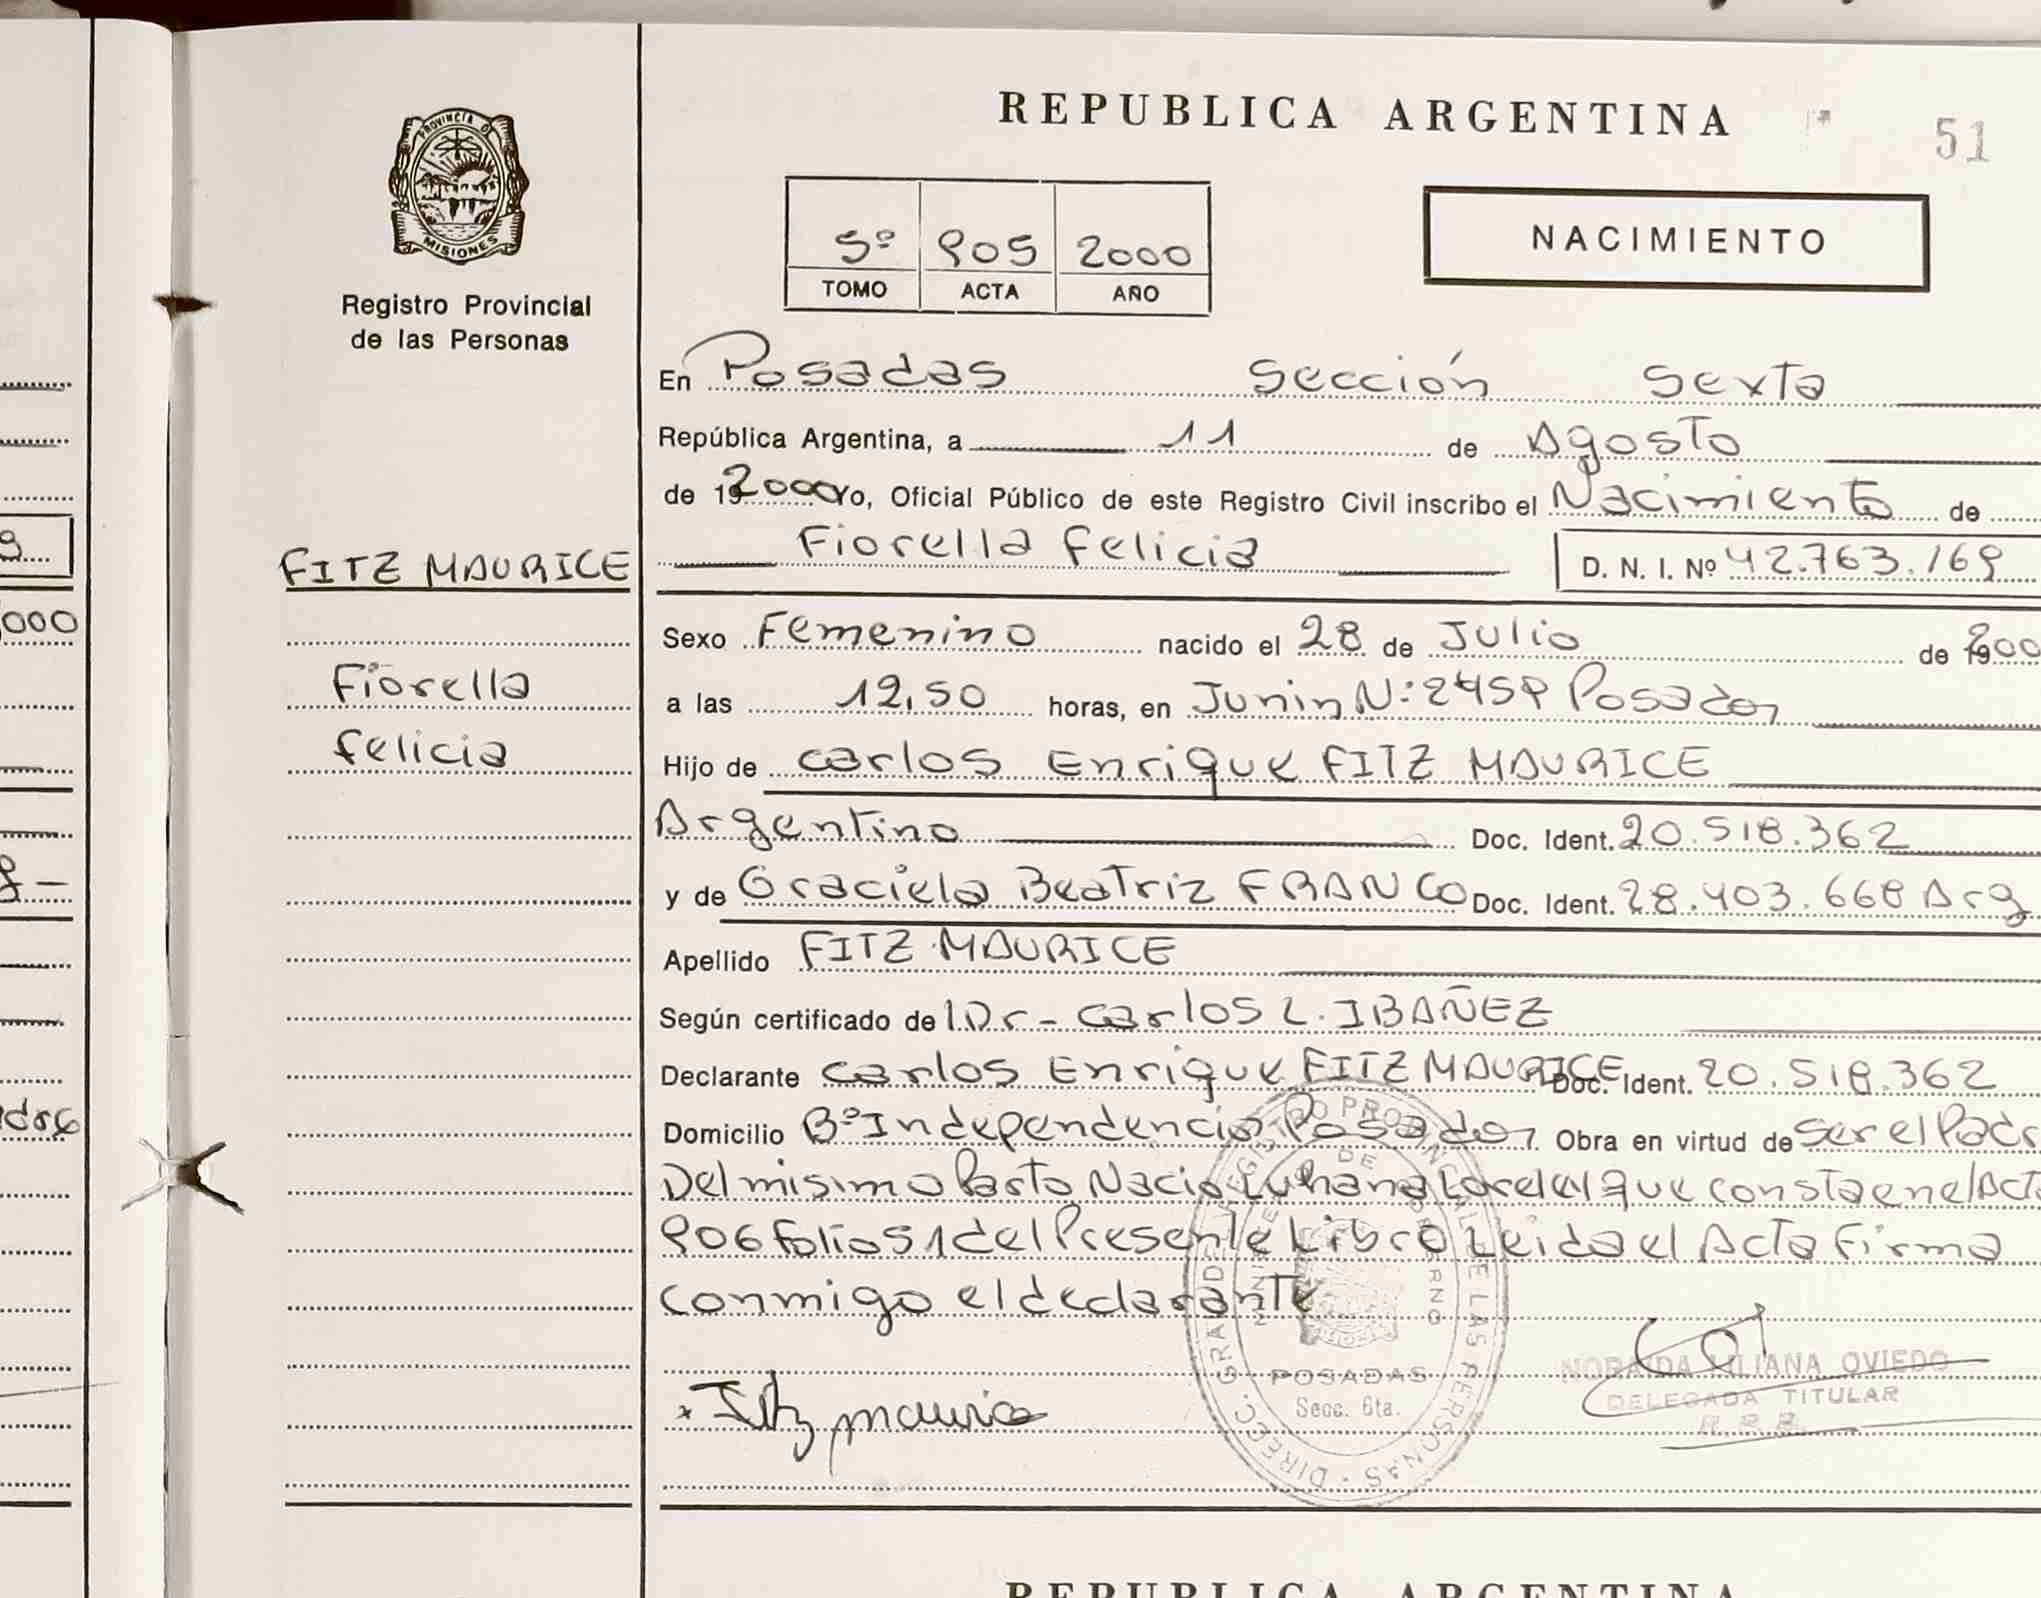 REPUBLICA ARGENTINA
51
PROVINCIA DE
MISIONES
Registro Provincial
de las Personas
5º 905 2000
TOMO ACTA AÑO
NACIMIENTO
En Posadas Sección Sexta
República Argentina, a 11 de Agosto
de 19 2000 Yo, Oficial Público de este Registro Civil inscribo el Nacimiento de
Fiorella Felicia D. N. I. Nº 42.763.169
FITZ MAURICE
Fiorella
Felicia
Sexo Femenino nacido el 28 de Julio de 19 200
a las 12,50 horas, en Junin N: Posadas
Hijo de Carlos Enrique FITZ MAURICE
Argentino Doc. Ident. 20.518.362
y de Graciela Beatriz FRANCO Doc. Ident. 28.403.668 Arg
Apellido FITZ MAURICE
Según certificado de Dr- Carlos L. IBAÑEZ
Declarante Carlos Enrique FITZ MAURICE Doc. Ident. 20.518.362
Domicilio Bº Independencia Posadas. Obra en virtud de Ser el Padr
Del mismo Parto Nacio que consta en el Act
906 folio 51 del Presente Libro Leida el Acta Firma
conmigo el declarante
Fitz maurice
DIRECC. GRAL. DEL REGISTRO PROVINCIAL DE LAS PERSONAS
POSADAS
Secc. 6ta.
NORAIDA LILIANA OVIEDO
DELEGADA TITULAR
000
REPUBLICA ARGENTINA